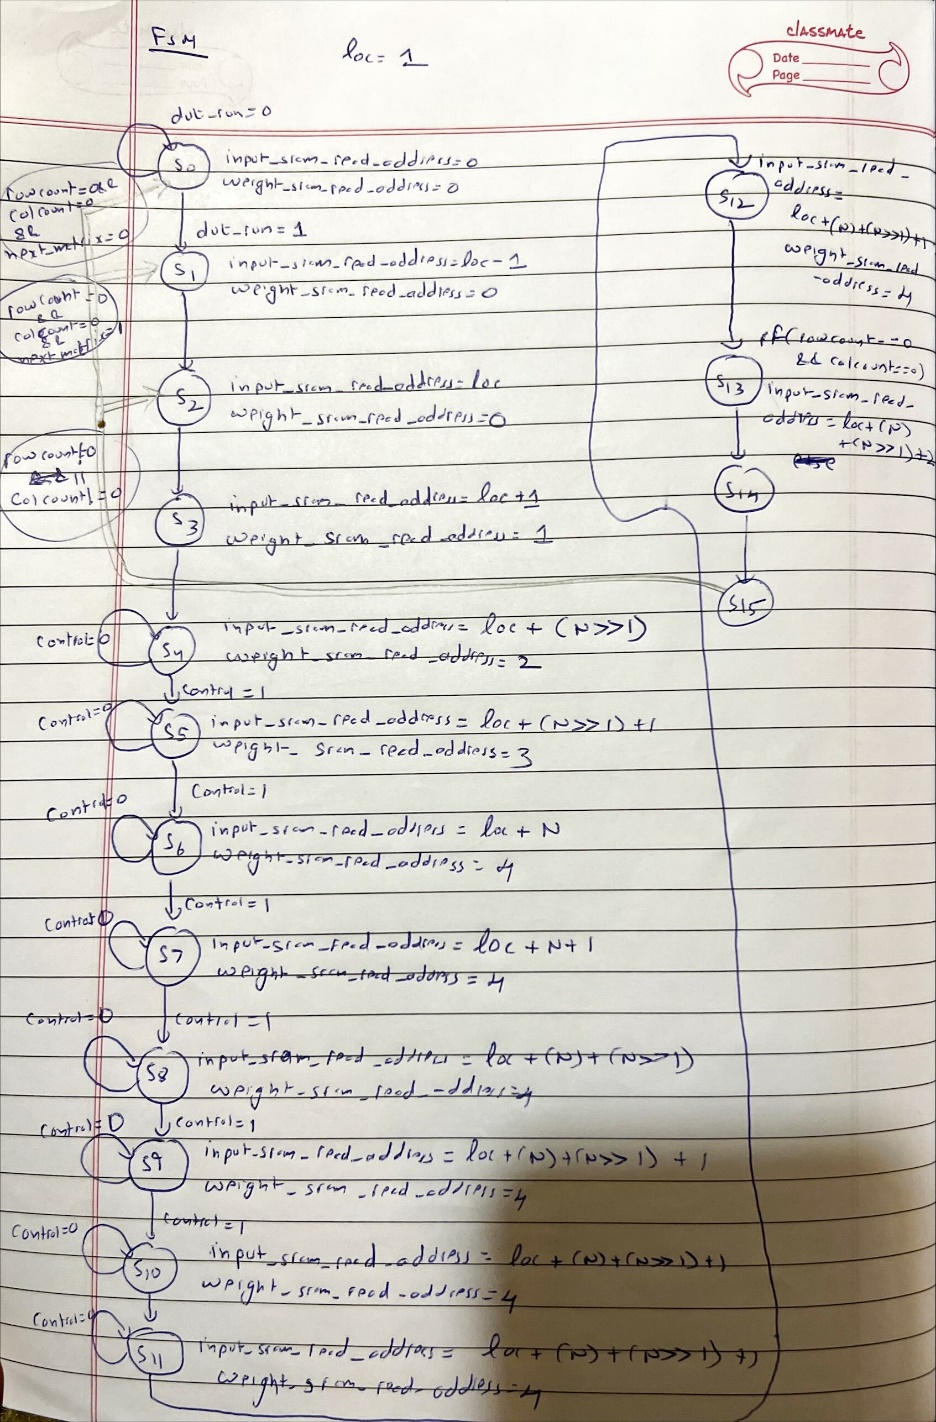 FSM
loc = 1
classmate
Date
Page
dut_run=0
S0
input_sram_read_address=0
weight_sram_read_address=0
rowcount=0&&
colcount=0
&&
next_matrix=0
dut_run=1
S1
input_sram_read_address=loc-1
weight_sram_read_address=0
rowcount=0
&&
colcount=0
&&
next_matrix=1
S2
input_sram_read_address=loc
weight_sram_read_address=0
rowcount!=0
||
colcount!=0
S3
input_sram_read_address=loc+1
weight_sram_read_address=1
control=0
S4
input_sram_read_address= loc + (N>>1)
weight_sram_read_address=2
control=1
control=0
S5
input_sram_read_address= loc+(N>>1)+1
weight_sram_read_address=3
control=1
control=0
S6
input_sram_read_address = loc + N
weight_sram_read_address = 4
control=1
control=0
S7
input_sram_read_address= loc + N+1
weight_sram_read_address = 4
control=0
control=1
S8
input_sram_read_address = loc +(N)+(N>>1)
weight_sram_read_address=4
control=0
control=1
S9
input_sram_read_address = loc+(N)+(N>>1) + 1
weight_sram_read_address=4
control=1
control=0
S10
input_sram_read_address = loc + (N)+(N>>1)+1
weight_sram_read_address=4
control=0
S11
input_sram_read_address = loc + (N) + (N>>1) +1
weight_sram_read_address=4
S12
input_sram_read_
address=
loc+(N)+(N>>1)+1
weight_sram_read
-address=4
if(rowcount==0
&& colcount==0)
S13
input_sram_read_
address = loc+(N)
+(N>>1)+2
else
S14
S15